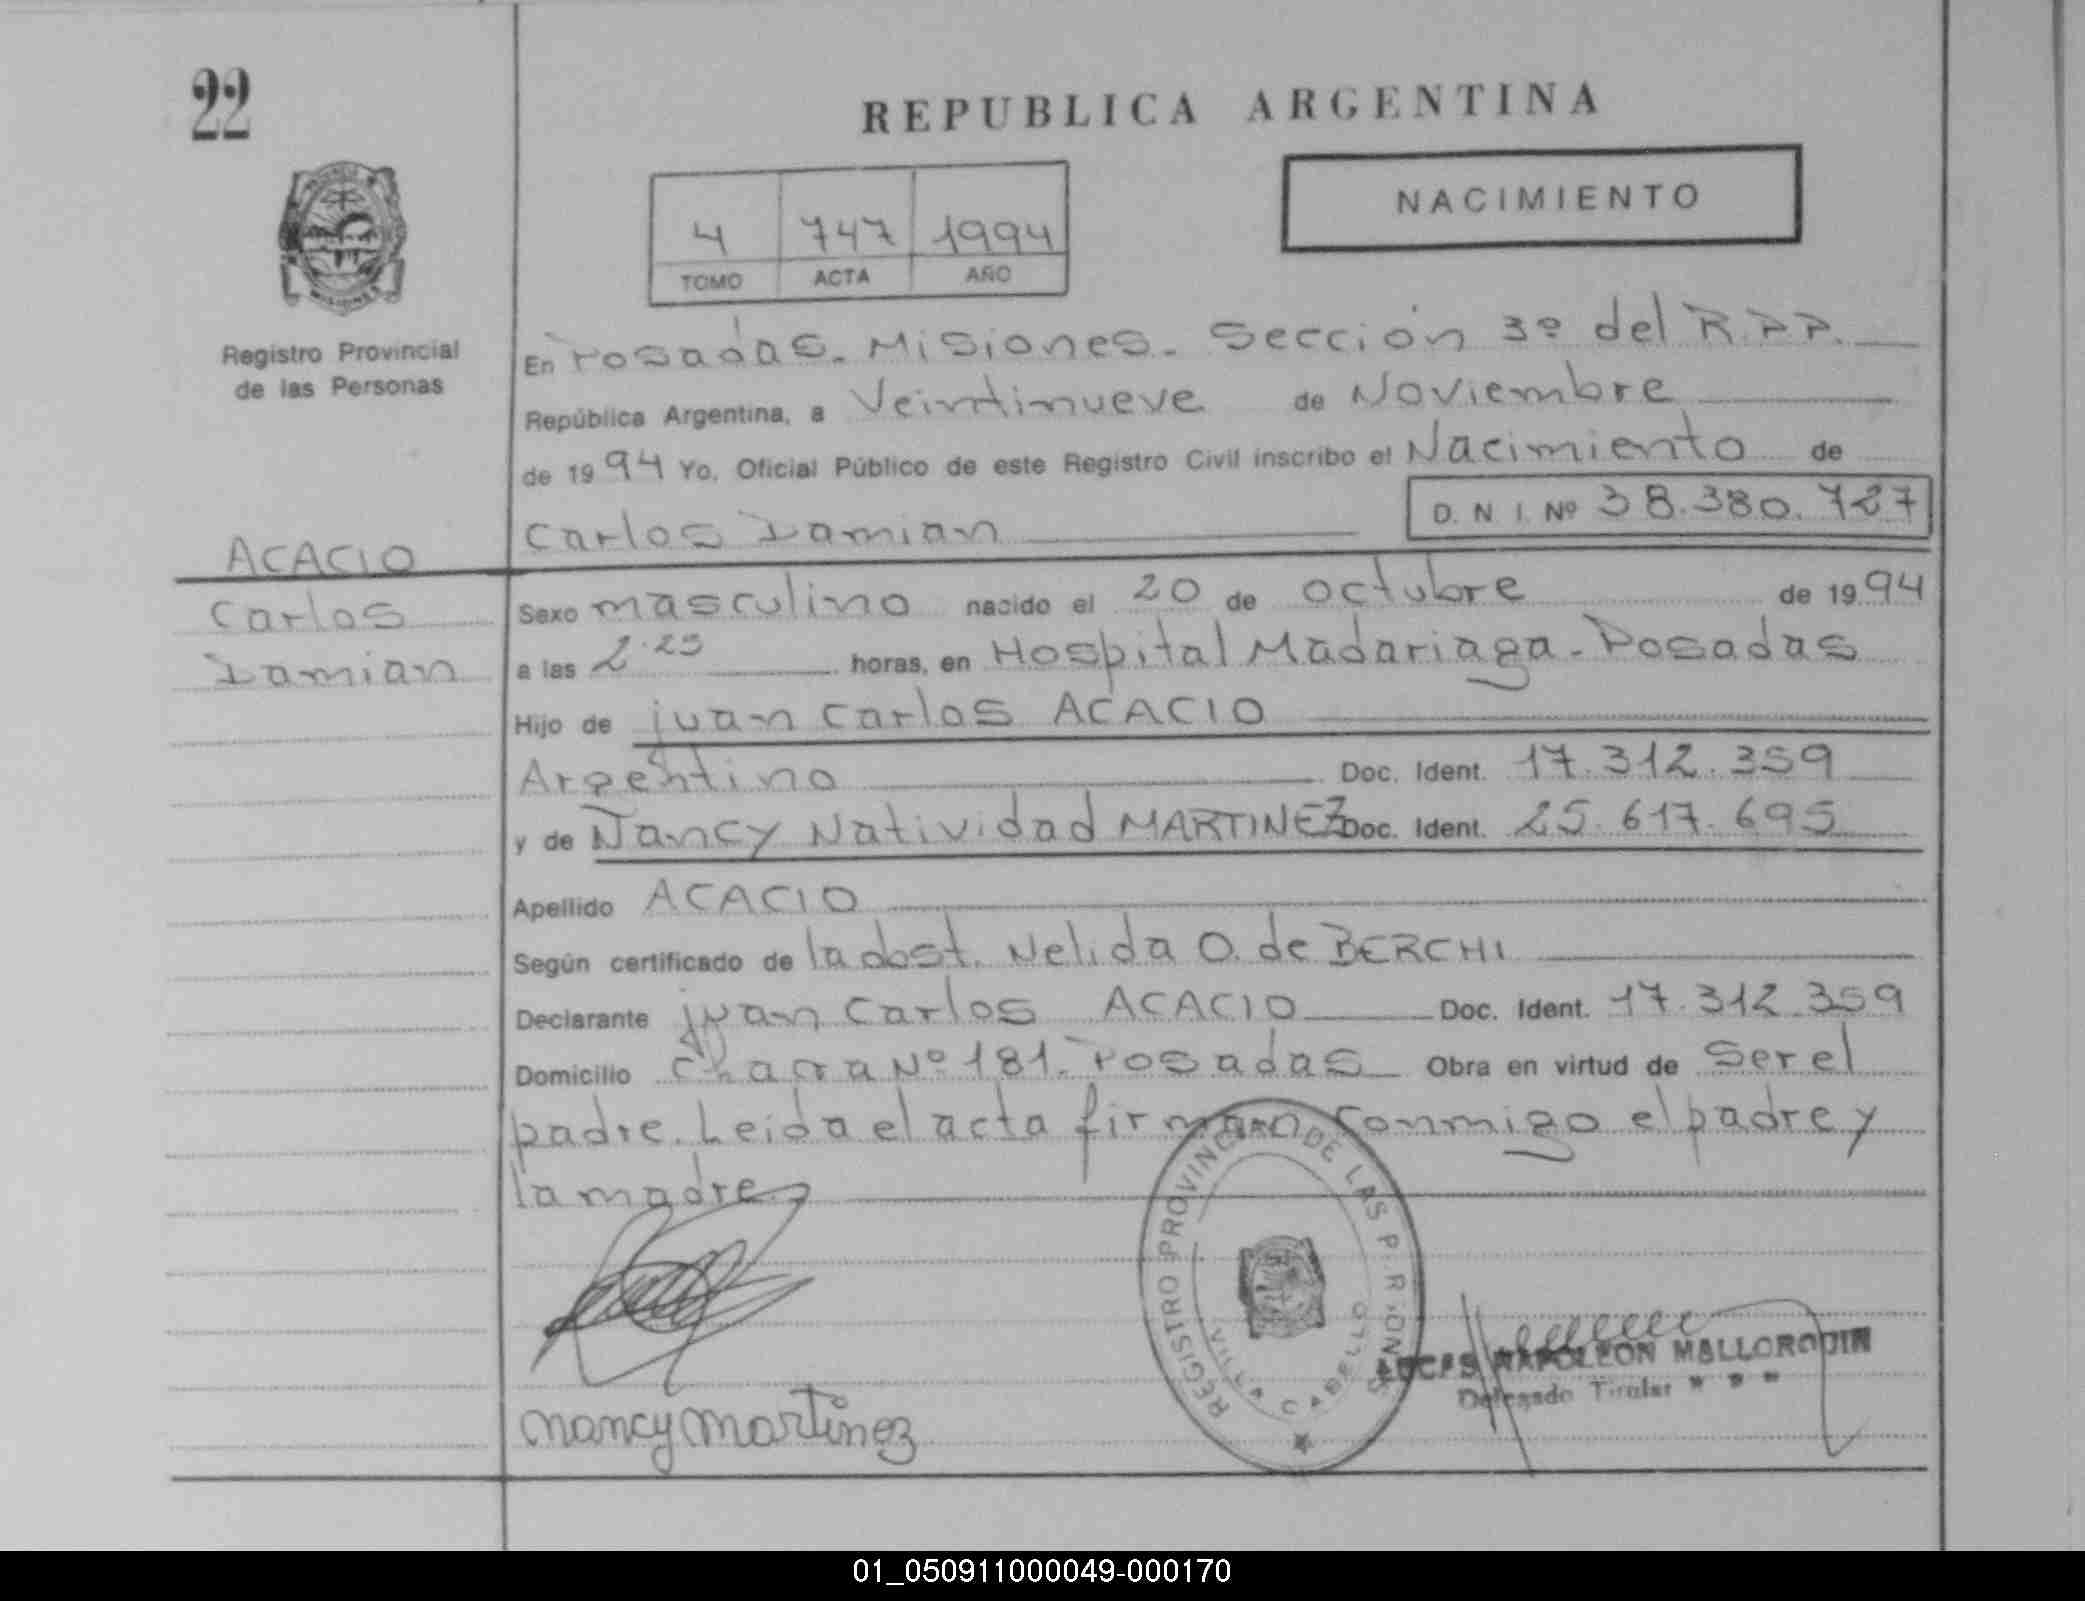 22
REPUBLICA ARGENTINA
4 747 1994
TOMO ACTA AÑO
NACIMIENTO
Registro Provincial
de las Personas
En Posadas. Misiones. Sección 3º del R.P.P.
República Argentina, a Veintinueve de Noviembre
de 1994 Yo, Oficial Público de este Registro Civil inscribo el Nacimiento de
Carlos Damian D. N. I. Nº 38.380.727
ACACIO
Carlos
Damian
Sexo masculino nacido el 20 de octubre de 1994
a las 2.25 horas, en Hospital Madariaga - Posadas
Hijo de juan Carlos ACACIO
Argentino Doc. Ident. 17.312.359
y de Nancy Natividad MARTINEZ Doc. Ident. 25.617.695
Apellido ACACIO
Según certificado de la obst. Nelida O. de BERCHI
Declarante juan Carlos ACACIO Doc. Ident. 17.312.359
Domicilio Chacra Nº 181. Posadas Obra en virtud de Ser el
padre. Leida el acta firman conmigo el padre y
la madre
REGISTRO PROVINCIAL DE LAS PERSONAS
VILLA CABELLO
NAPOLEON MALLORQUIN
Delegado Titular
nancy martinez
01_050911000049-000170